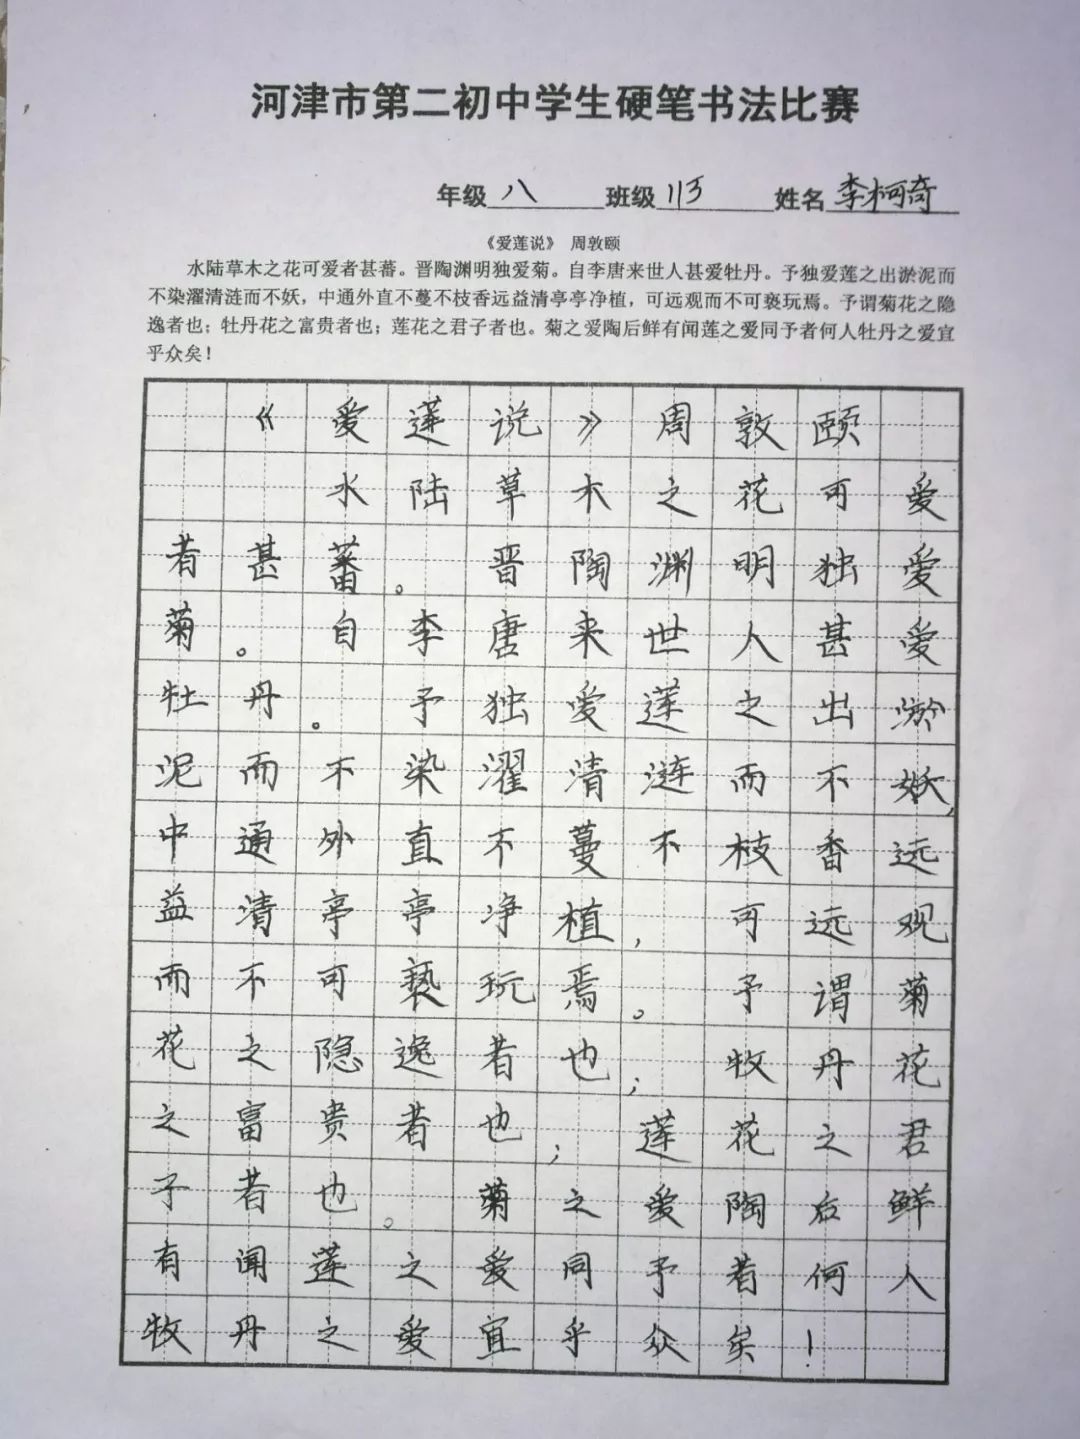 河津市第二初中学生硬笔书法比赛
年级 八 班级 113 姓名 李柯奇
《爱莲说》 周敦颐
水陆草木之花可爱者甚蕃。晋陶渊明独爱菊。自李唐来世人甚爱牡丹。予独爱莲之出淤泥而
不染濯清涟而不妖，中通外直不蔓不枝香远益清亭亭净植，可远观而不可亵玩焉。予谓菊花之隐
逸者也；牡丹花之富贵者也；莲花之君子者也。菊之爱陶后鲜有闻莲之爱同予者何人牡丹之爱宜
乎众矣！
《爱莲说》周敦颐
水陆草木之花可爱
者甚蕃。晋陶渊明独爱
菊。自李唐来世人甚爱
牡丹。予独爱莲之出淤
泥而不染濯清涟而不妖，
中通外直不蔓不枝香远
益清亭亭净植，可远观
而不可亵玩焉。予谓菊
花之隐逸者也；牧丹花
之富贵者也；莲花之君
子者也。菊之爱陶后鲜
有闻莲之爱同予者何人
牧丹之爱宜乎众矣！